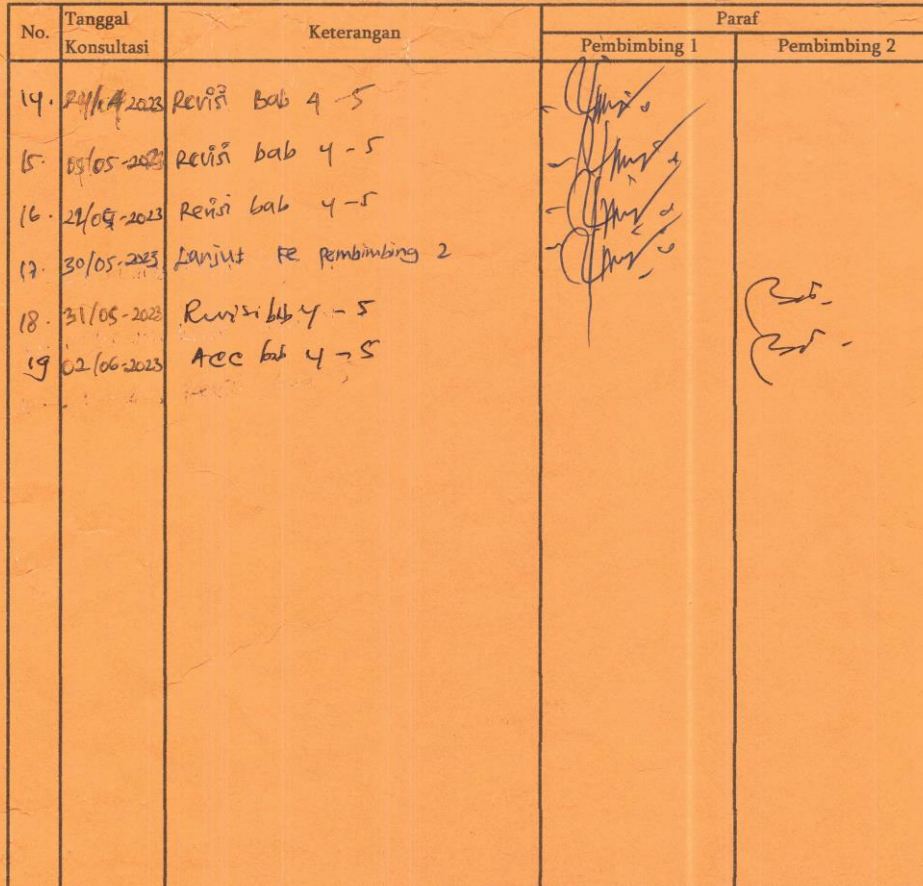 No. Tanggal Konsultasi Keterangan Paraf
Pembimbing 1 Pembimbing 2
14. 2023 Revisi Bab 4 - 5
15. 05-2023 Revisi bab 4 - 5
16. 2023 Revisi bab 4 - 5
17. 30/05-2023 Lanjut ke pembimbing 2
18. 31/05-2023 Revisi bab 4 - 5
19 02/06-2023 ACC bab 4 - 5